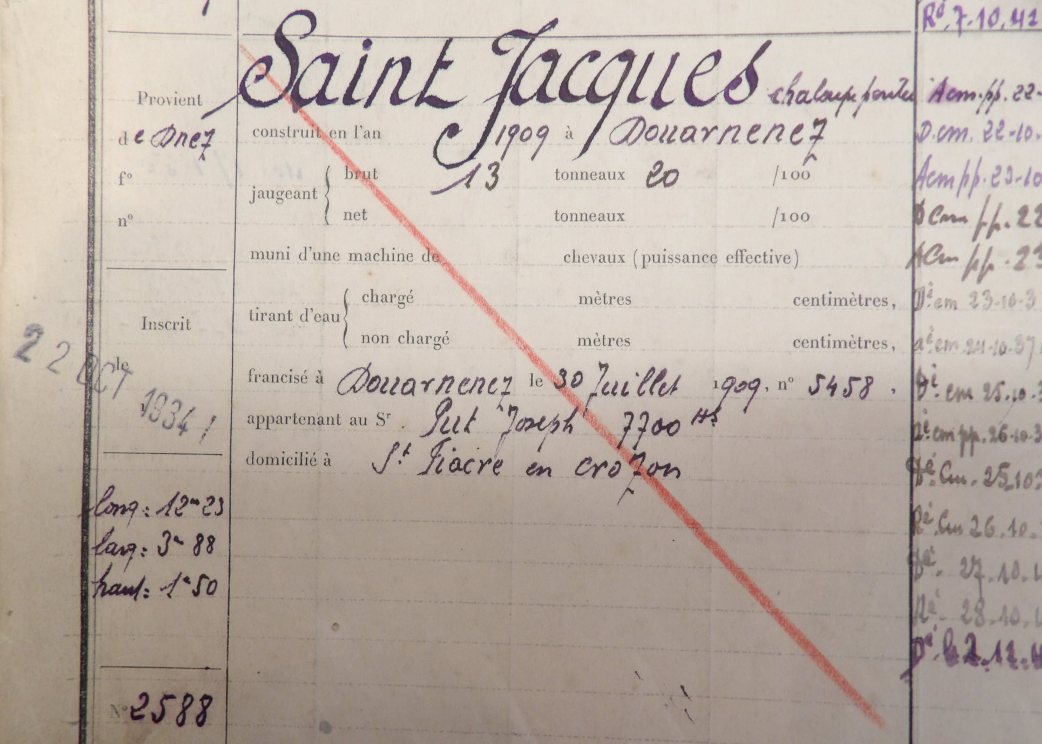 Saint Jacques chaloupe pontée
Provient
de Dnez
f°
n°
construit en l'an 1909 à Douarnenez
jaugeant { brut 13 tonneaux 20 /100
net tonneaux /100
muni d'une machine de chevaux (puissance effective)
tirant d'eau { chargé mètres centimètres,
non chargé mètres centimètres,
francisé à Douarnenez le 30 Juillet 1909, n° 5458.
appartenant au Sr. Put Joseph 7700 Hs
domicilié à St Fiacre en crozon
Inscrit
le
22 OCT 1934
long: 12m23
larg: 3m88
haut: 1m50
N° 2588
Ré. 7.10.41
Acm.pp. 22-
D.cm. 22-10-
Acm pp. 23-10
DCm pp. 22
ACm pp. 23
Dé cm 23-10-3
aé cm. 24-10-37
Dé cm 25.10.3
Ré cm pp. 26-10-3
Dé Cm. 25.10
Ré Cm 26.10.
Dé. 27.10.
Ré. 28.10.
Dé. le 2.12.